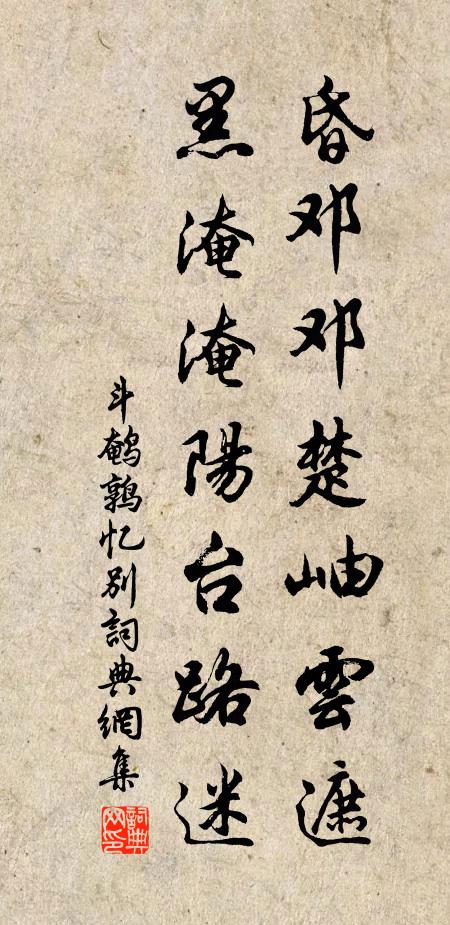 昏邓邓楚岫雲遮
黑淹淹陽台路迷
斗鹌鹑忆别詞典網集
詞典网印